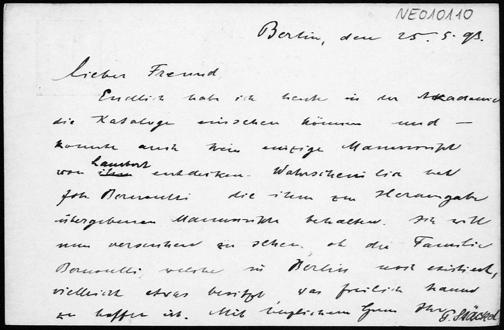 NE010110
Berlin, den 25. 5. 93.
Lieber Freund
Endlich habe ich heute in der Akademie
die Kataloge einsehen können und —
konnte auch kein einziges Manuscript
von Lambert entdecken. Wahrscheinlich hat
Joh Bernoulli die ihm zur Herausgabe
übergebenen Manuscripte behalten. Ich will
nun versuchen zu sehen, ob die Familie
Bernoulli, welche in Berlin noch existiert,
vielleicht etwas besitzt, was freilich kaum
zu hoffen ist. Mit herzlichem Gruss Ihr
P. Stäckel